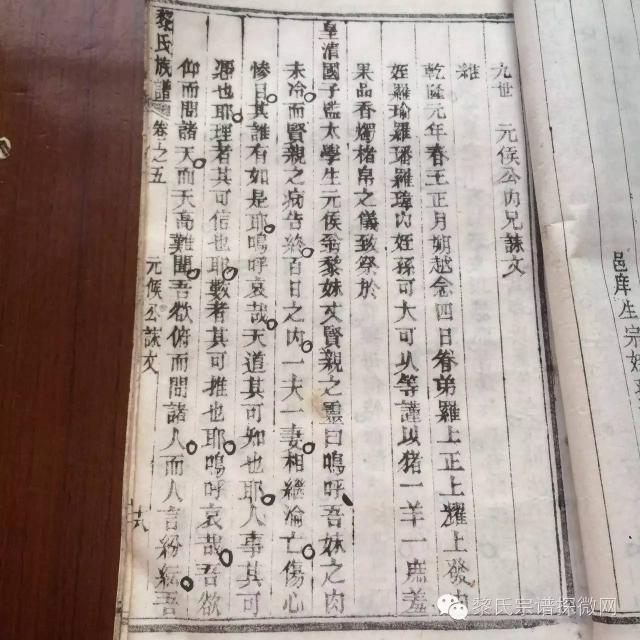 邑庠生宗姪
九世 元候公內兄誄文
維
乾隆元年春王正月朔越念四日眷弟羅上正上耀上發內
姪羅瑜羅璠羅瑋內姪孫可大可从等謹以猪一羊一庶羞
果品香燭楮帛之儀致祭於
皇清國子監太學生元侯翁黎妹丈賢親之靈曰嗚呼吾妹之肉
未冷而賢親之病告終百日之內一夫一妻相繼淪亡傷心
慘目其誰有如是耶嗚呼哀哉天道其可知也耶人事其可
憑也耶理者其可信也耶數者其可推也耶嗚呼哀哉吾欲
仰而問諸天而天高難聞吾欲俯而問諸人而人言紛紜吾
黎氏族譜 卷之五 元候公誄文
黎氏宗谱探微网